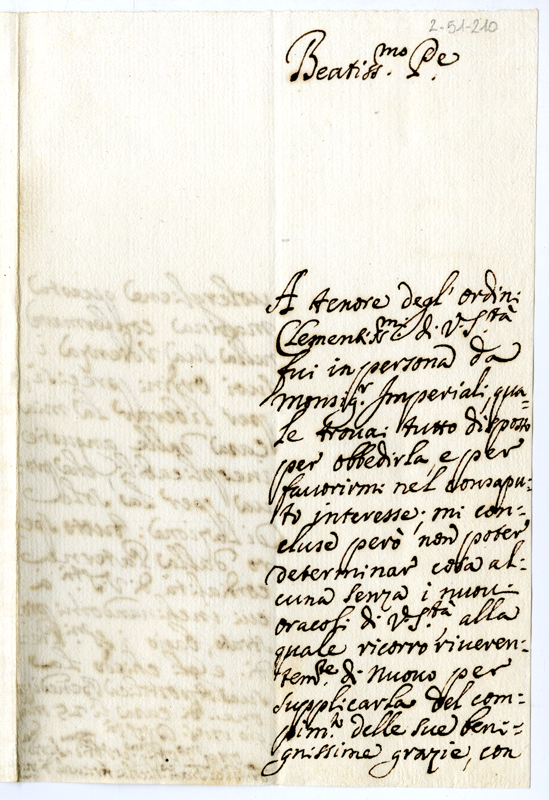 2-51-210
Beatiss.mo Pe.
A tenore degl' ordini
Clementiss.mi di V. S.tà
fui in persona da
Monsig.r Imperiali, qua-
le trovai tutto disposto
per obbedirla, e per
favorirmi nel consapu-
to interesse; mi con-
cluse però non poter
determinar cosa al-
cuna senza i nuovi
oracoli di V. S.tà, alla
quale ricorro riveren-
tem.te di nuovo per
supplicarla del com-
pim.to delle sue beni-
gnissime grazie, con